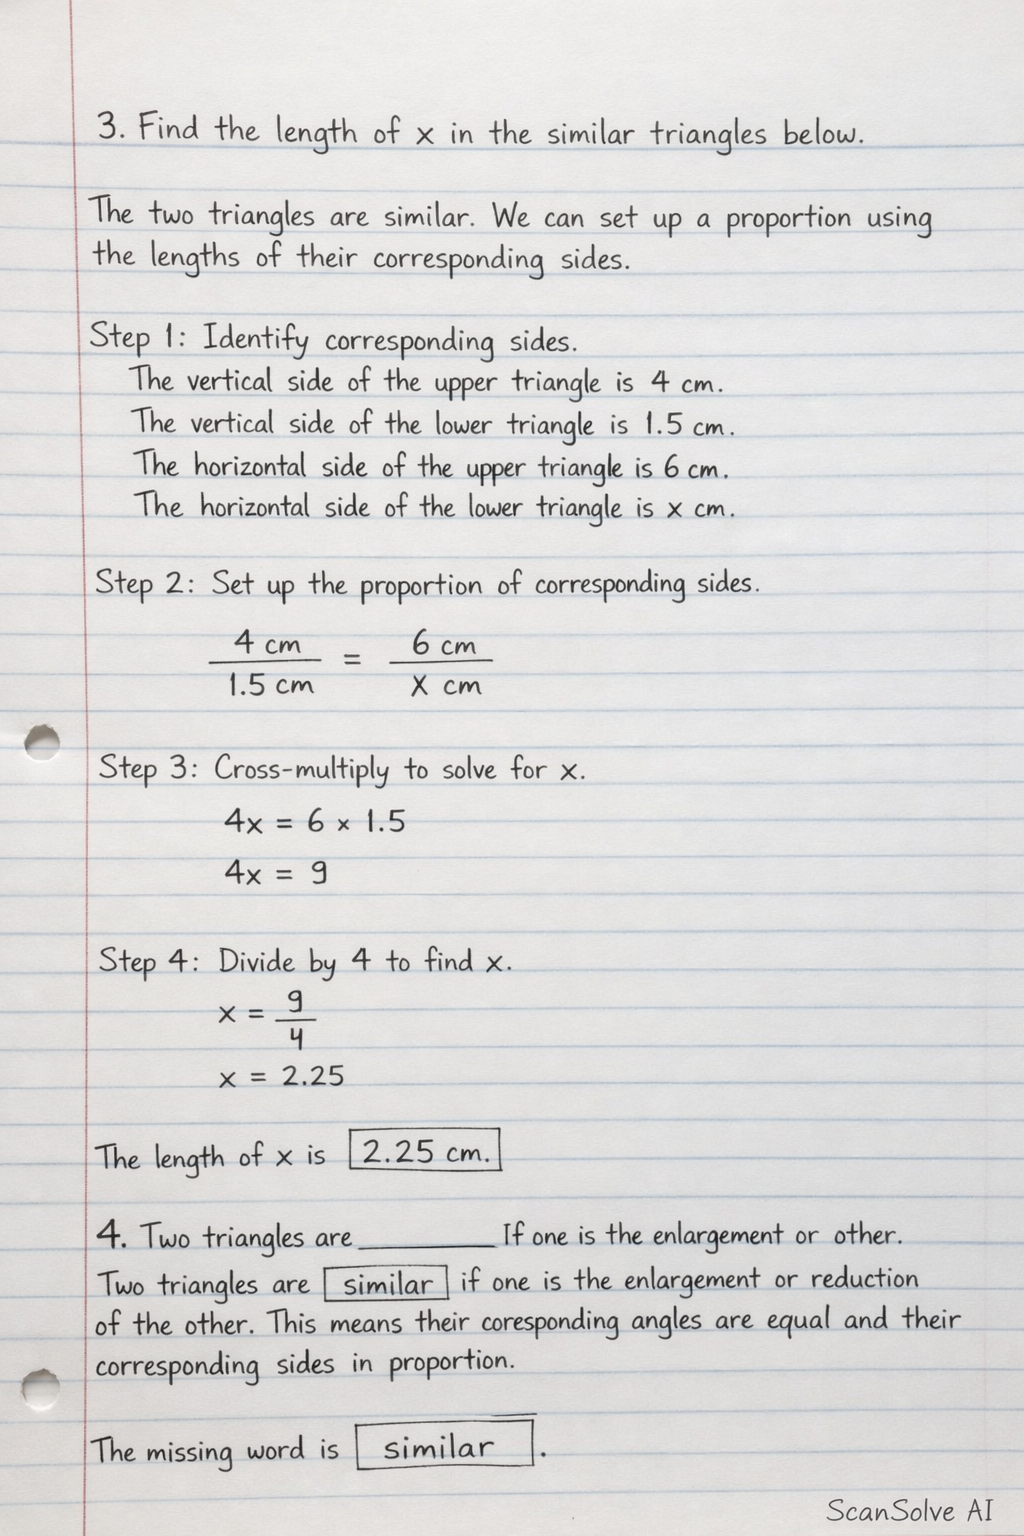 3. Find the length of x in the similar triangles below.
The two triangles are similar. We can set up a proportion using
the lengths of their corresponding sides.
Step 1: Identify corresponding sides.
The vertical side of the upper triangle is 4 cm.
The vertical side of the lower triangle is 1.5 cm.
The horizontal side of the upper triangle is 6 cm.
The horizontal side of the lower triangle is x cm.
Step 2: Set up the proportion of corresponding sides.
4 cm / 1.5 cm = 6 cm / X cm
Step 3: Cross-multiply to solve for x.
4x = 6 × 1.5
4x = 9
Step 4: Divide by 4 to find x.
x = 9/4
x = 2.25
The length of x is 2.25 cm.
4. Two triangles are ________ If one is the enlargement or other.
Two triangles are similar if one is the enlargement or reduction
of the other. This means their coresponding angles are equal and their
corresponding sides in proportion.
The missing word is similar.
ScanSolve AI